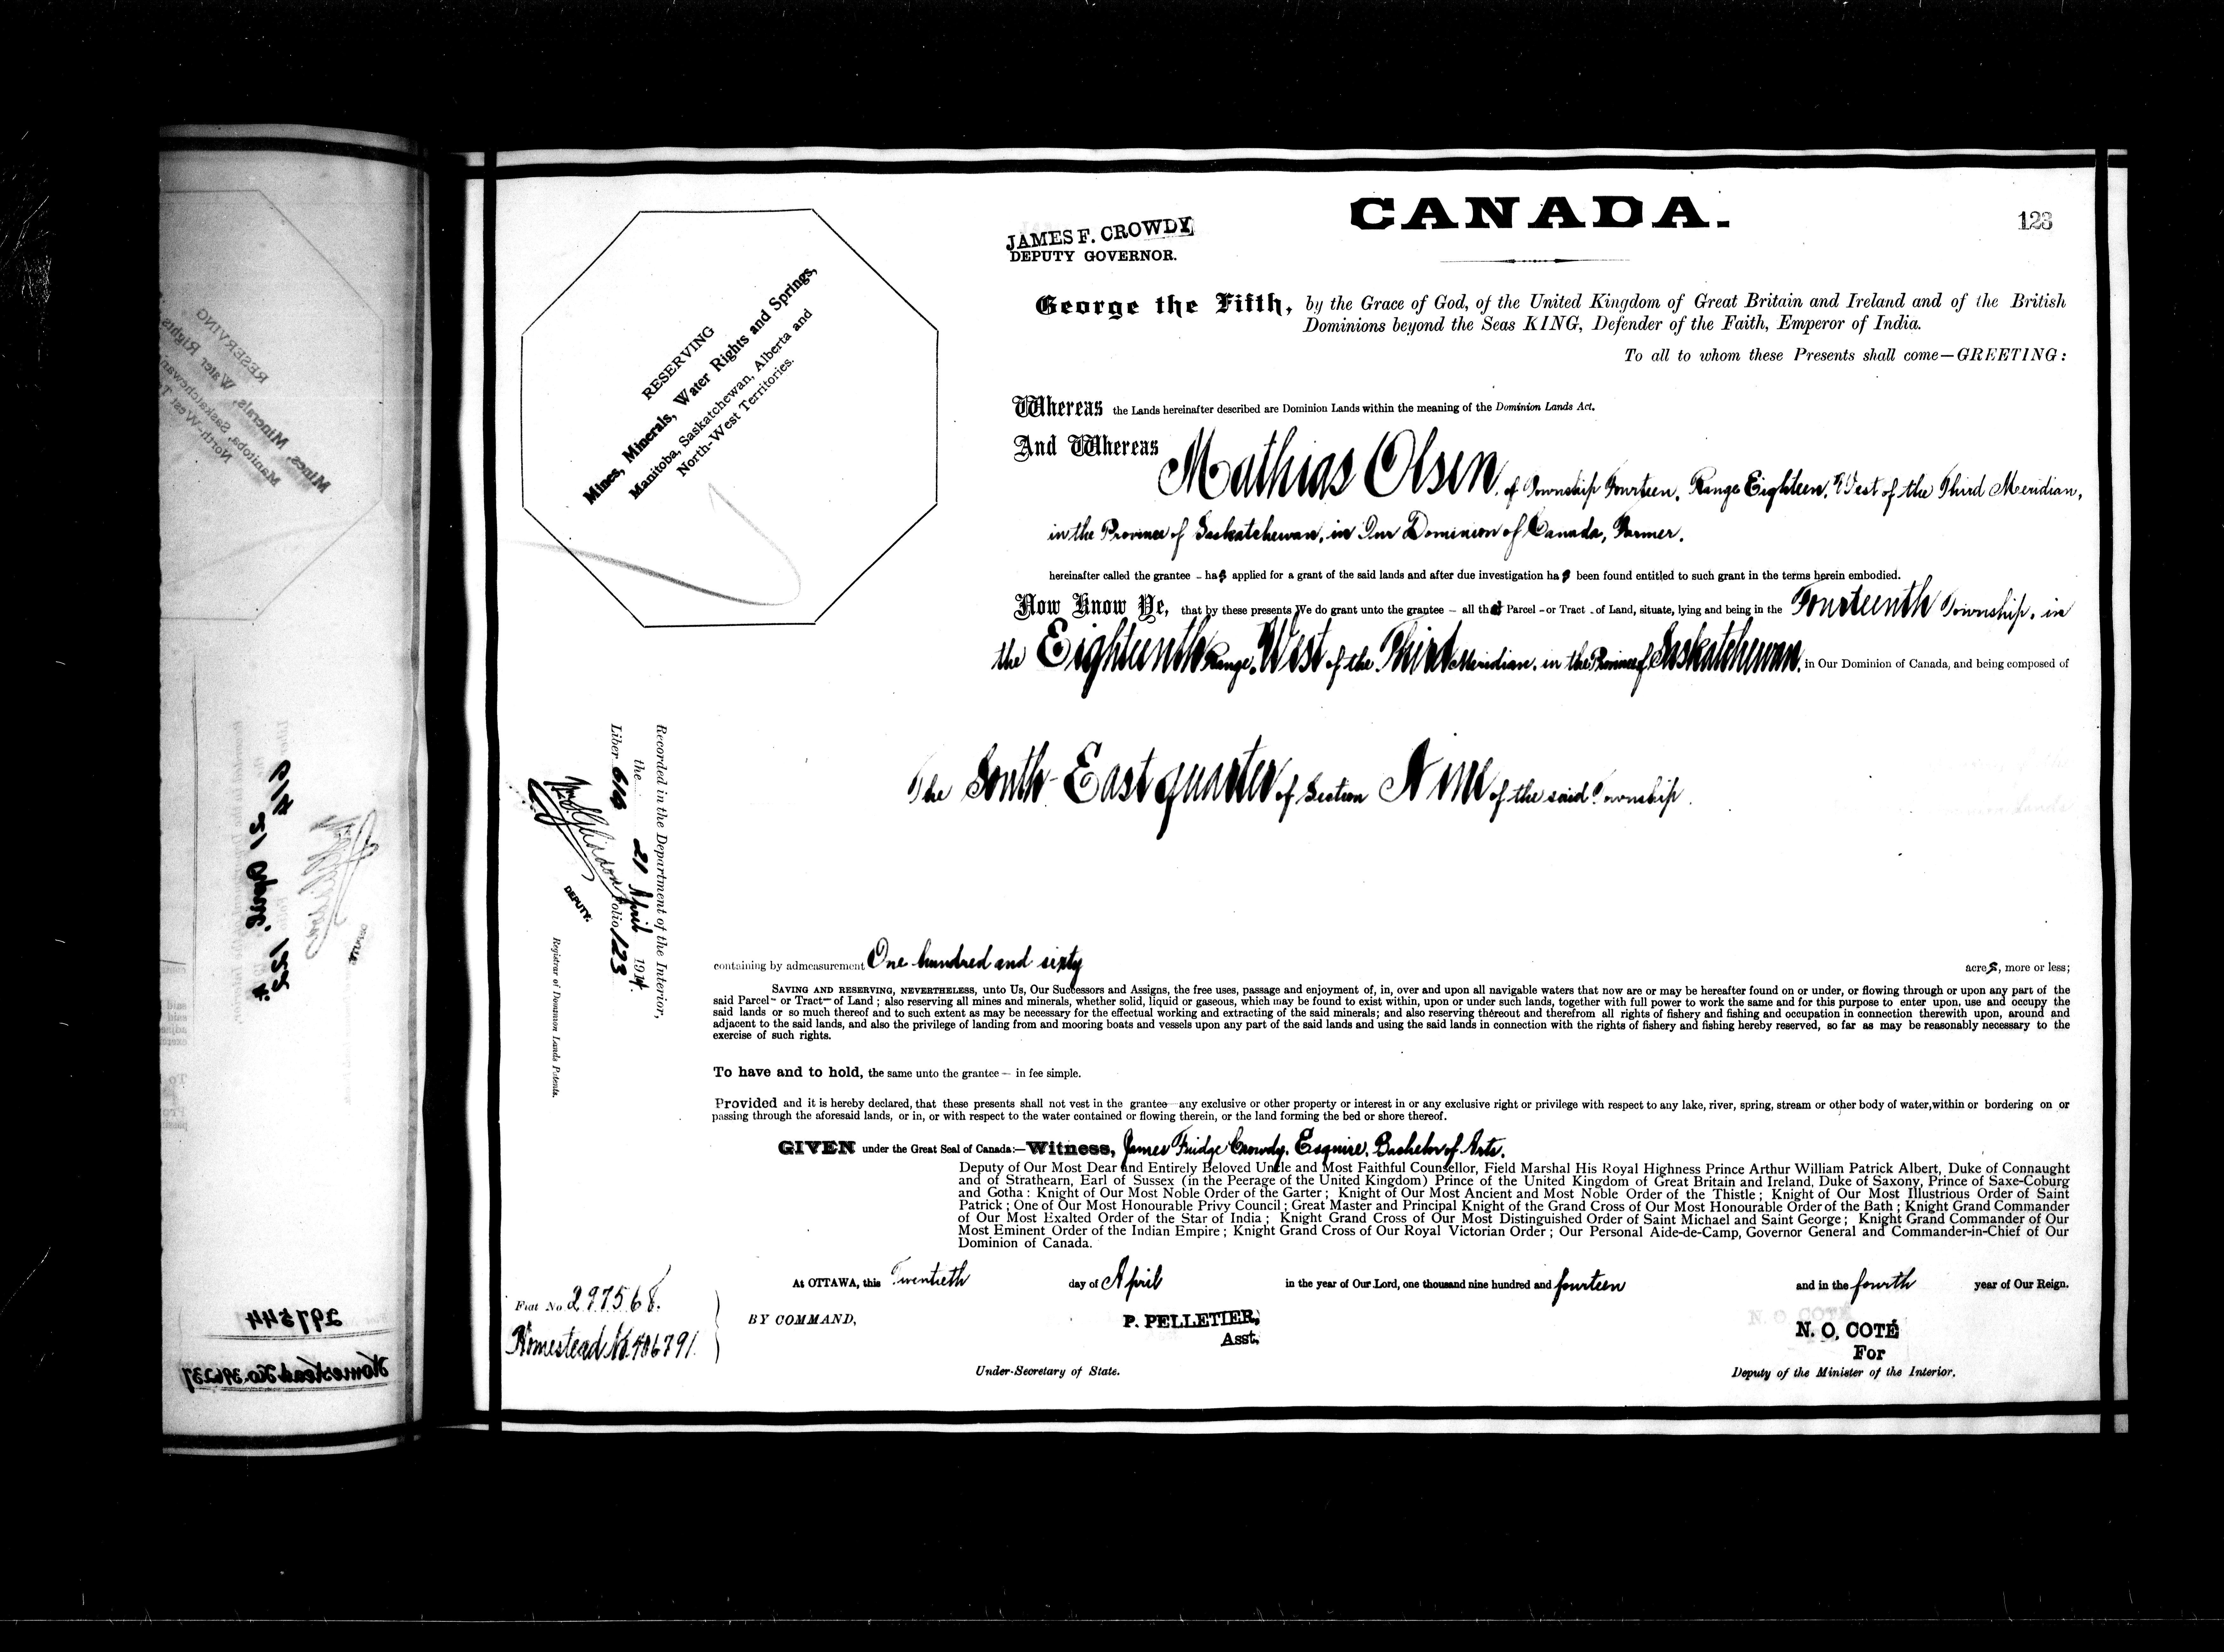 CANADA.
123
JAMES F. CROWDY
DEPUTY GOVERNOR.
RESERVING
Mines, Minerals, Water Rights and Springs,
Manitoba, Saskatchewan, Alberta and
North-West Territories.
George the Fifth, by the Grace of God, of the United Kingdom of Great Britain and Ireland and of the British
Dominions beyond the Seas KING, Defender of the Faith, Emperor of India.
To all to whom these Presents shall come—GREETING:
Whereas the Lands hereinafter described are Dominion Lands within the meaning of the Dominion Lands Act.
And Whereas Mathias Olsen, of Township Fourteen, Range Eighteen, West of the Third Meridian,
in the Province of Saskatchewan, in Our Dominion of Canada, Farmer.
hereinafter called the grantee – has applied for a grant of the said lands and after due investigation has been found entitled to such grant in the terms herein embodied.
Now Know Ye, that by these presents We do grant unto the grantee – all that Parcel – or Tract – of Land, situate, lying and being in the Fourteenth Township, in
the Eighteenth Range, West of the Third Meridian, in the Province of Saskatchewan, in Our Dominion of Canada, and being composed of
The South-East quarter of Section Nine of the said Township.
containing by admeasurement One hundred and sixty acres, more or less;
SAVING AND RESERVING, NEVERTHELESS, unto Us, Our Successors and Assigns, the free uses, passage and enjoyment of, in, over and upon all navigable waters that now are or may be hereafter found on or under, or flowing through or upon any part of the
said Parcel – or Tract – of Land ; also reserving all mines and minerals, whether solid, liquid or gaseous, which may be found to exist within, upon or under such lands, together with full power to work the same and for this purpose to enter upon, use and occupy the
said lands or so much thereof and to such extent as may be necessary for the effectual working and extracting of the said minerals; and also reserving thereout and therefrom all rights of fishery and fishing and occupation in connection therewith upon, around and
adjacent to the said lands, and also the privilege of landing from and mooring boats and vessels upon any part of the said lands and using the said lands in connection with the rights of fishery and fishing hereby reserved, so far as may be reasonably necessary to the
exercise of such rights.
To have and to hold, the same unto the grantee – in fee simple.
Provided and it is hereby declared, that these presents shall not vest in the grantee any exclusive or other property or interest in or any exclusive right or privilege with respect to any lake, river, spring, stream or other body of water, within or bordering on or
passing through the aforesaid lands, or in, or with respect to the water contained or flowing therein, or the land forming the bed or shore thereof.
GIVEN under the Great Seal of Canada:—Witness, James Fridge Crowdy, Esquire, Bachelor of Arts.
Deputy of Our Most Dear and Entirely Beloved Uncle and Most Faithful Counsellor, Field Marshal His Royal Highness Prince Arthur William Patrick Albert, Duke of Connaught
and of Strathearn, Earl of Sussex (in the Peerage of the United Kingdom) Prince of the United Kingdom of Great Britain and Ireland, Duke of Saxony, Prince of Saxe-Coburg
and Gotha : Knight of Our Most Noble Order of the Garter ; Knight of Our Most Ancient and Most Noble Order of the Thistle ; Knight of Our Most Illustrious Order of Saint
Patrick ; One of Our Most Honourable Privy Council ; Great Master and Principal Knight of the Grand Cross of Our Most Honourable Order of the Bath ; Knight Grand Commander
of Our Most Exalted Order of the Star of India ; Knight Grand Cross of Our Most Distinguished Order of Saint Michael and Saint George ; Knight Grand Commander of Our
Most Eminent Order of the Indian Empire ; Knight Grand Cross of Our Royal Victorian Order ; Our Personal Aide-de-Camp, Governor General and Commander-in-Chief of Our
Dominion of Canada.
At OTTAWA, this Twentieth day of April in the year of Our Lord, one thousand nine hundred and fourteen and in the fourth year of Our Reign.
BY COMMAND,
P. PELLETIER,
Asst.
Under-Secretary of State.
N. O. COTÉ
For
Deputy of the Minister of the Interior.
Fiat No 297568.
Homestead No 406791.
Recorded in the Department of the Interior,
the 21 April 1914.
Liber 616 Folio 123
DEPUTY.
Registrar of Dominion Lands Patents.
297544
Homestead No. 396237